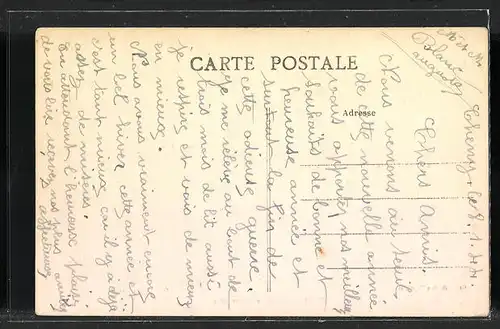 CARTE POSTALE
Adresse
Ce 8. 1. 44.
Chers Amis.
Nous venons au seuil
de cette nouvelle année
vous apporter nos meilleurs
souhaits de bonne et
heureuse année et
surtout la fin de
cette odieuse guerre.
Je me relève au bout de
trois mois de lit aussi
je respire et vais de mieux
en mieux.
Nous avons vraiment encore
un bel hiver cette année et
c'est tant mieux il y a déjà
assez de misères.
En attendant l'heureux plaisir
de vous lire recevez nos plus